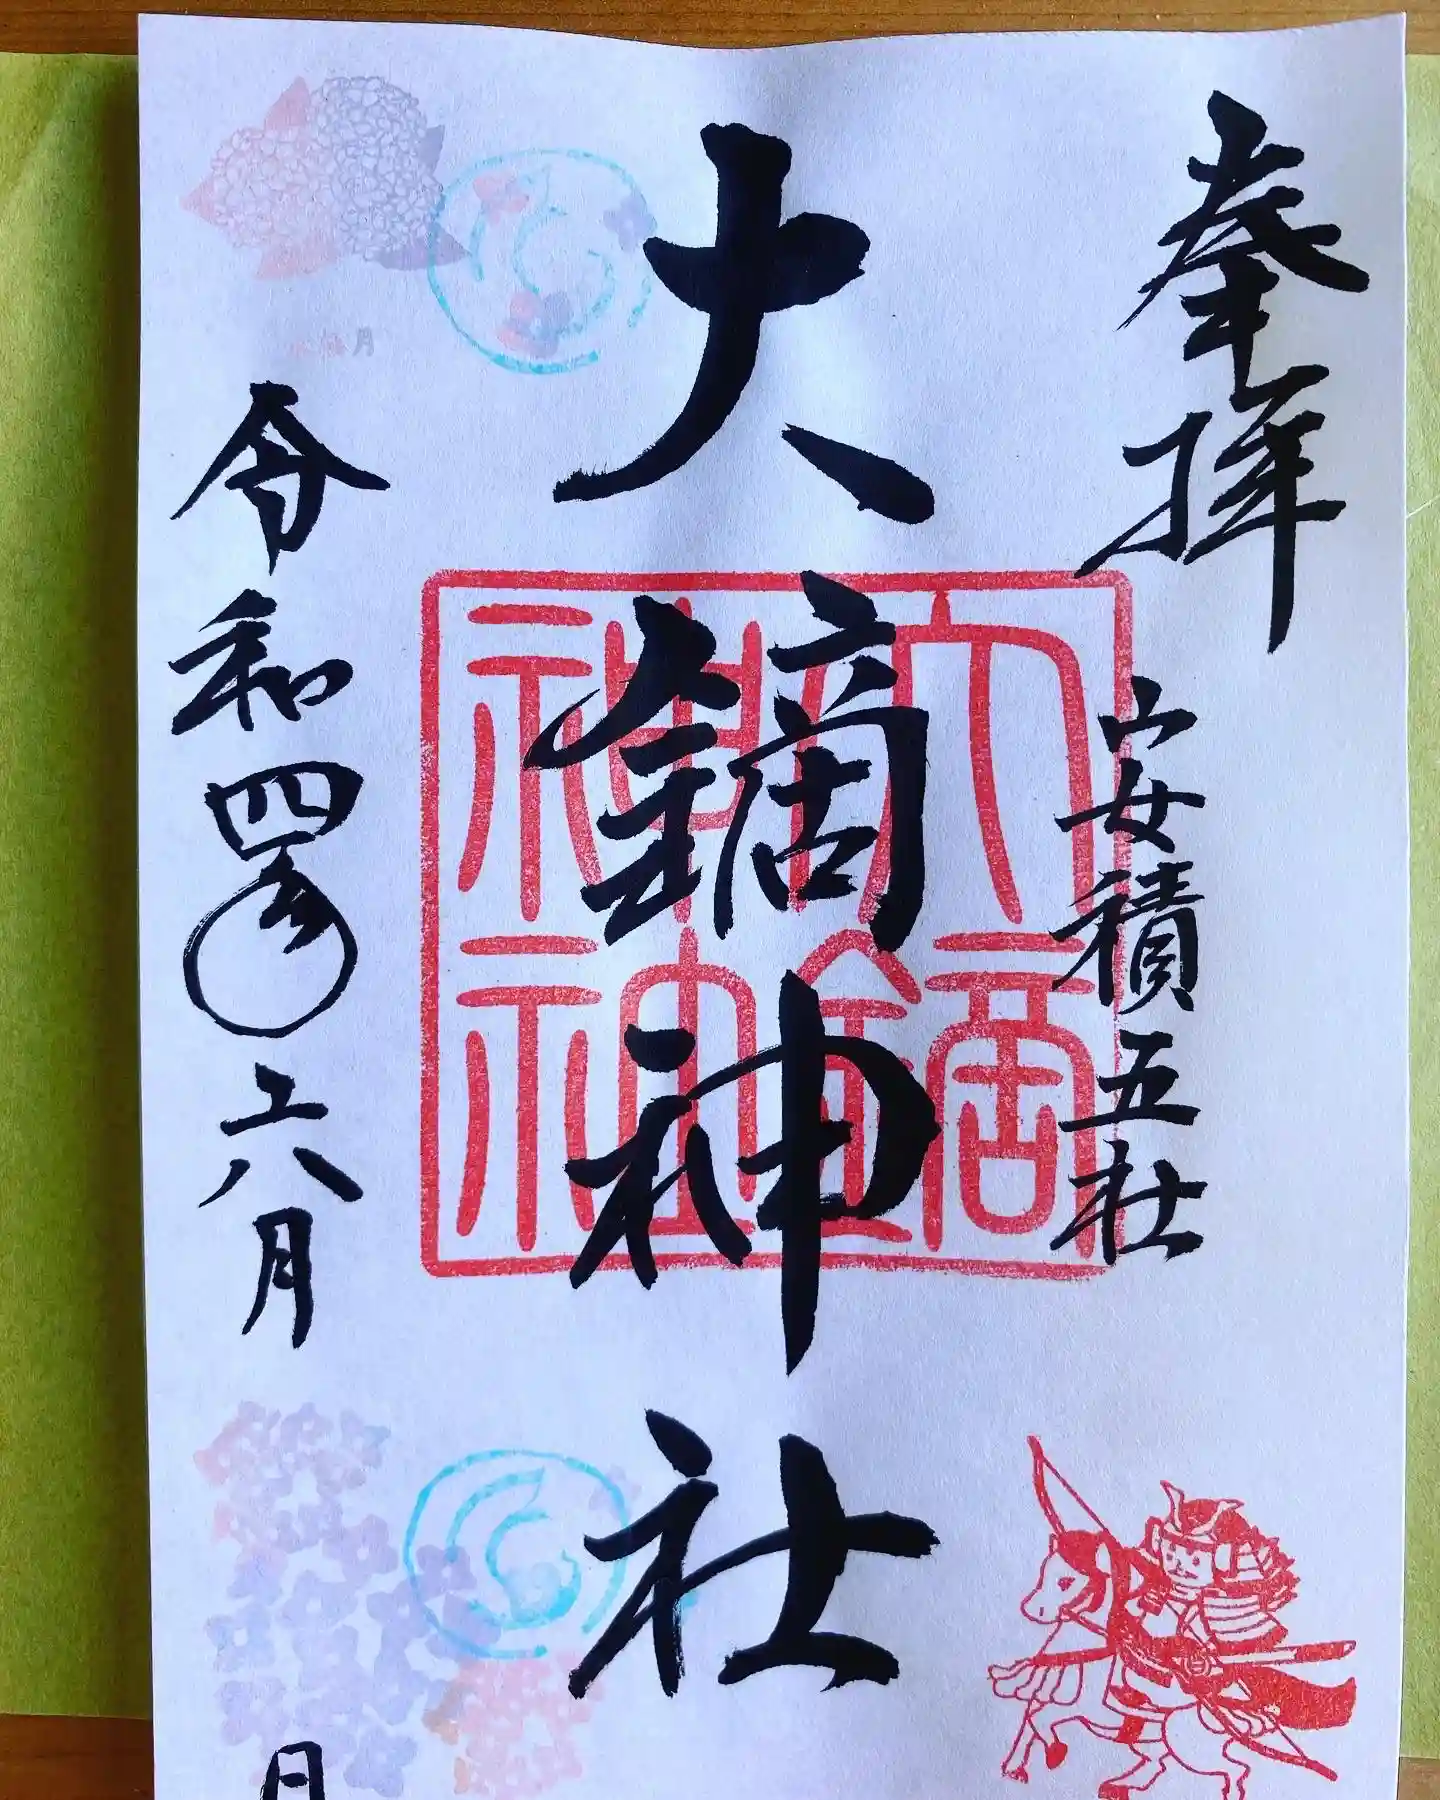 奉拝
安積五社
大鏑神社
大鏑
神社
令和四年六月
日
月